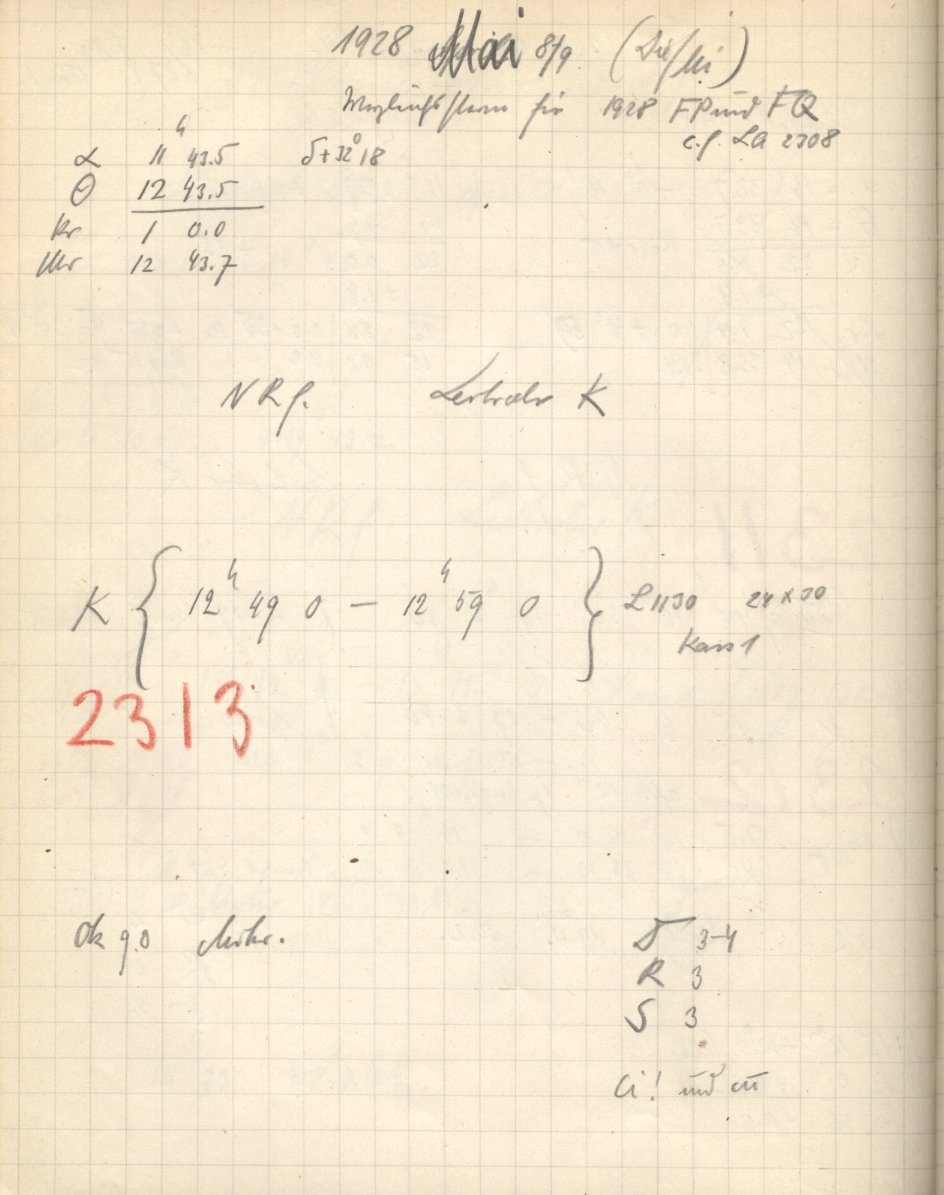 1928 Mai 8/9 (Di/Mi)
Vergleichsstern für 1928 FP und FQ
c.f. La 2308
α 11ʰ 43.5 δ+32° 18
θ 12 43.5
kr 1 0.0
Uhr 12 43.7
NRf. Leitrohr K
K { 12ʰ 49 0 – 12ʰ 59 0 } L1130 24x30
Kass 1
2313
Ok 9.0
D 3-4
R 3
S 3
Ci! und cu